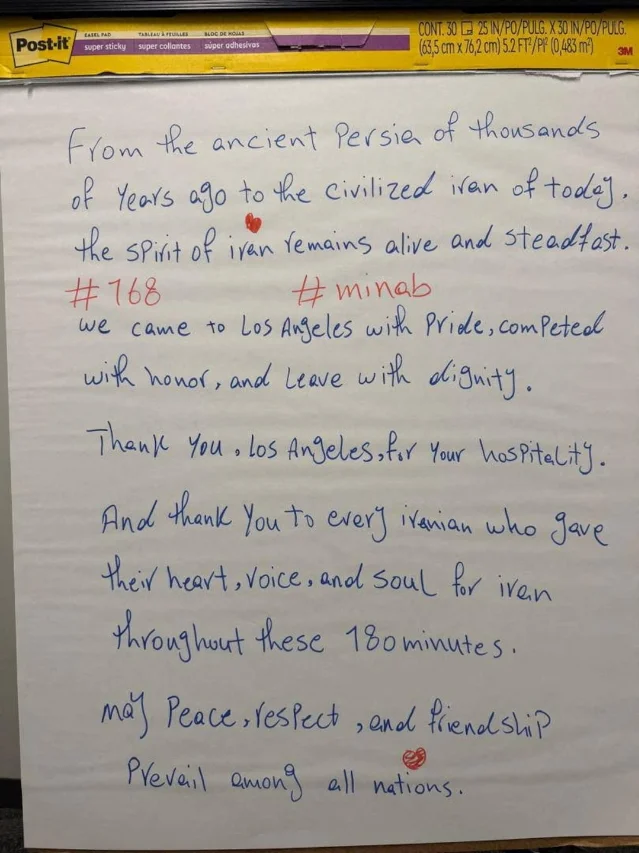 Post-it
EASEL PAD
super sticky
TABLEAU À FEUILLES
super collantes
BLOC DE HOJAS
súper adhesivas
CONT. 30 25 IN/PO/PULG. X 30 IN/PO/PULG.
(63,5 cm x 76,2 cm) 5.2 FT²/PI² (0,483 m²)
3M
From the ancient Persia of thousands
of years ago to the civilized iran of today.
the spirit of iran remains alive and steadfast.
#168 #minab
we came to Los Angeles with Pride, competed
with honor, and Leave with dignity.
Thank You, Los Angeles, for Your hospitality.
And thank You to every iranian who gave
their heart, voice, and soul for iran
throughout these 180 minutes.
may Peace, respect, and friendship
Prevail among all nations.